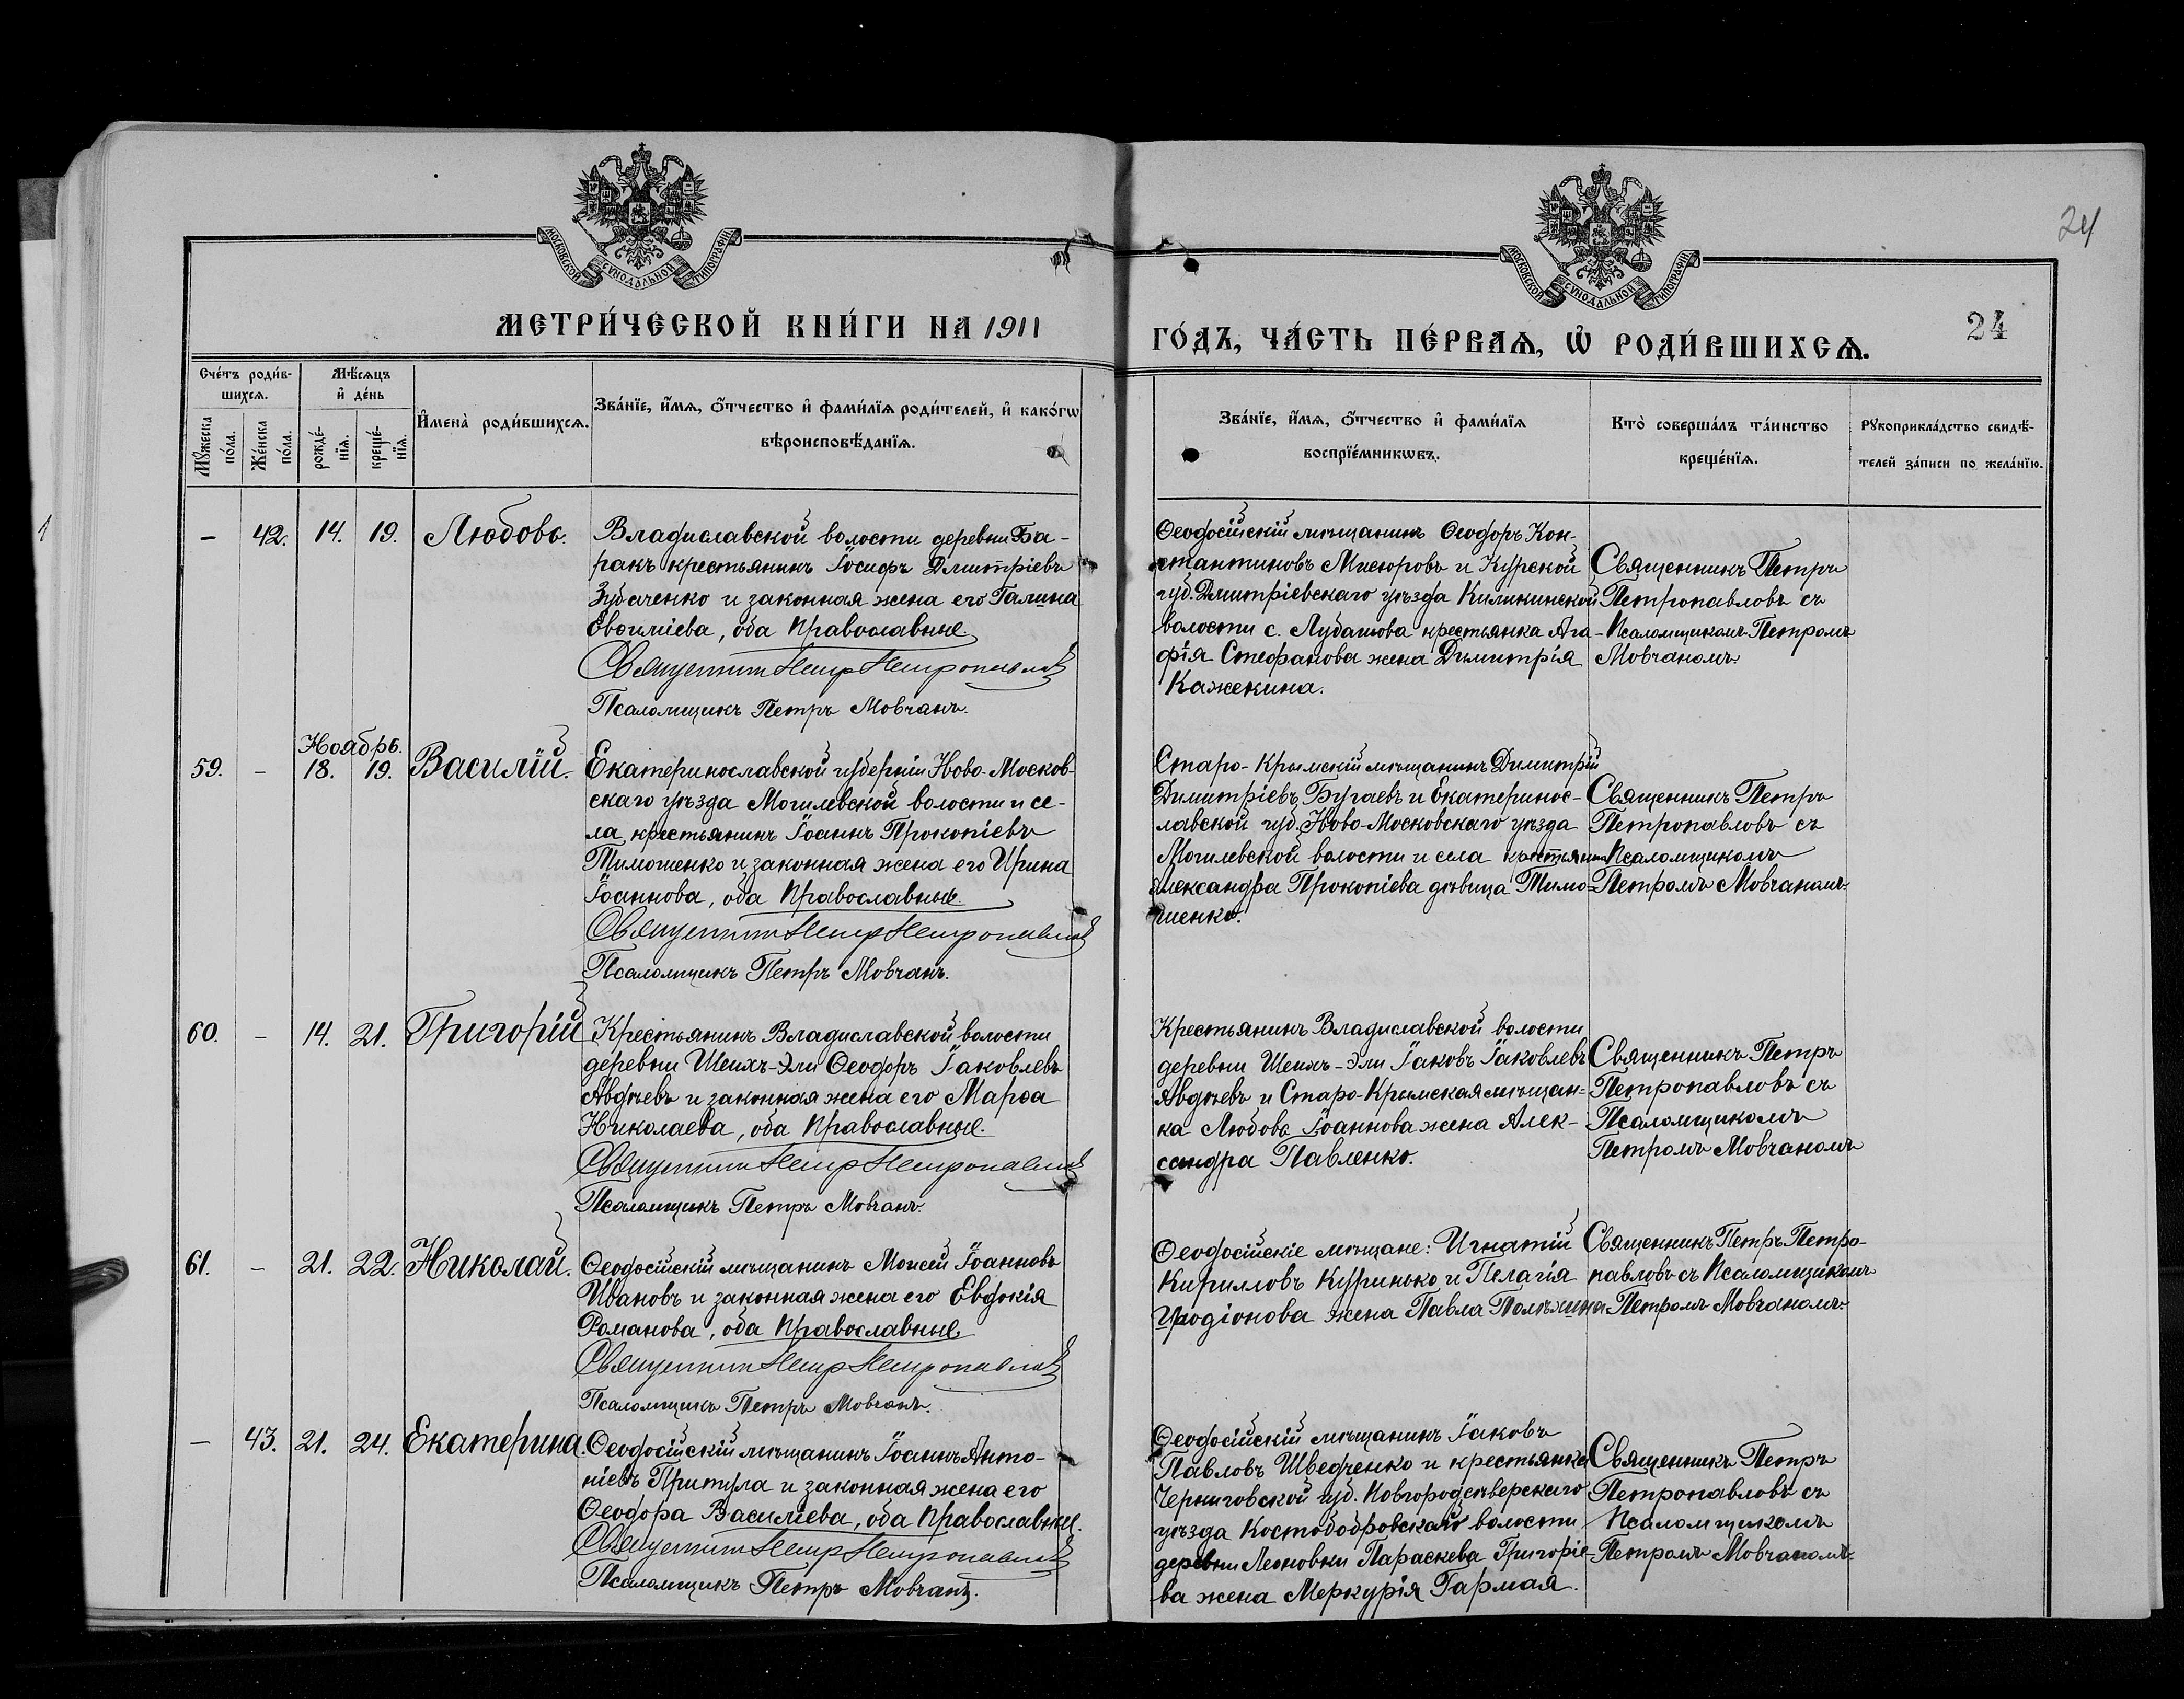 24
МОСКОВСКОЙ СѴНОДАЛЬНОЙ ТИПОГРАФІИ
МОСКОВСКОЙ СѴНОДАЛЬНОЙ ТИПОГРАФІИ
МЕТРИ́ЧЕСКОЙ КНИ́ГИ НА 1911
ГО́ДЪ, ЧА́СТЬ ПЕ́РВАѦ, Ѽ РОДИ́ВШИХСѦ.
24
Сче́тъ роди́в-
шихсѧ.
Мѣ́сѧцъ
и҆ де́нь
Мꙋ́жеска
по́ла.
Же́нска
по́ла.
рожде́-
нїѧ.
креще́-
нїѧ.
И҆мена̀ роди́вшихсѧ.
Зва́нїе, и҆́мѧ, ѻ҆́тчество и҆ фами́лїѧ роди́телей, и҆ како́гѡ
вѣроисповѣ́данїѧ.
Зва́нїе, и҆́мѧ, ѻ҆́тчество и҆ фами́лїѧ
воспрїе́мникѡвъ.
Кто̀ соверша́лъ та́инство
креще́нїѧ.
Рꙋкоприкла́дство свидѣ́-
телей за́писи по жела́нїю.
1
– 42. 14. 19. Любовь.
Владиславской волости деревни Ба-
ракъ крестьянинъ Іосифъ Дмитріевъ
Зубаченко и законная жена его Галина
Евѳиміева, оба православные.
Священникъ Петръ Петропавловъ
Псаломщикъ Петръ Мовчанъ.
Ѳеодосійскій мѣщанинъ Ѳеодоръ Кон-
стантиновъ Мисюровъ и Курской
губ. Дмитріевскаго уѣзда Киликинской
волости с. Лубашова крестьянка Ага-
фія Стефанова жена Димитрія
Кажекина.
Священникъ Петръ
Петропавловъ съ
Псаломщикомъ Петромъ
Мовчаномъ.
Ноябрь.
59. – 18. 19. Василій.
Екатеринославской губерніи Ново-Москов-
скаго уѣзда Могилевской волости и се-
ла крестьянинъ Іоаннъ Прокопіевъ
Тимошенко и законная жена его Ирина
Іоаннова, оба православные.
Священникъ Петръ Петропавловъ
Псаломщикъ Петръ Мовчанъ.
Старо-Крымскій мѣщанинъ Димитрій
Димитріевъ Бугаевъ и Екатеринос-
лавской губ. Ново-Московскаго уѣзда
Могилевской волости и села крестьянка
Александра Прокопіева дѣвица Тимо-
шенко.
Священникъ Петръ
Петропавловъ съ
Псаломщикомъ
Петромъ Мовчаномъ.
60. – 14. 21. Григорій
Крестьянинъ Владиславской волости
деревни Шеихъ-Эли Ѳеодоръ Іаковлевъ
Авдѣевъ и законная жена его Марѳа
Николаева, оба православные.
Священникъ Петръ Петропавловъ
Псаломщикъ Петръ Мовчанъ.
Крестьянинъ Владиславской волости
деревни Шеихъ-Эли Іаковъ Іаковлевъ
Авдѣевъ и Старо-Крымская мѣщан-
ка Любовь Іоаннова жена Алек-
сандра Павленко.
Священникъ Петръ
Петропавловъ съ
Псаломщикомъ
Петромъ Мовчаномъ
61. – 21. 22. Николай.
Ѳеодосійскій мѣщанинъ Моисей Іоанновъ
Ивановъ и законная жена его Евдокія
Романова, оба православные.
Священникъ Петръ Петропавловъ
Псаломщикъ Петръ Мовчанъ.
Ѳеодосійскіе мѣщане: Игнатій
Кирилловъ Куринько и Пелагія
Иродіонова жена Павла Полѣхина.
Священникъ Петръ Петро-
павловъ съ Псаломщикомъ
Петромъ Мовчаномъ.
– 43. 21. 24. Екатерина.
Ѳеодосійскій мѣщанинъ Іоаннъ Анто-
ніевъ Притула и законная жена его
Ѳеодора Василіева, оба православные.
Священникъ Петръ Петропавловъ
Псаломщикъ Петръ Мовчанъ.
Ѳеодосійскій мѣщанинъ Іаковъ
Павловъ Шведченко и крестьянка
Черниговской губ. Новгородсѣверскаго
уѣзда Костобобровской волости
деревни Леоновки Параскева Григоріе-
ва жена Меркурія Гармая.
Священникъ Петръ
Петропавловъ съ
Псаломщикомъ
Петромъ Мовчаномъ.